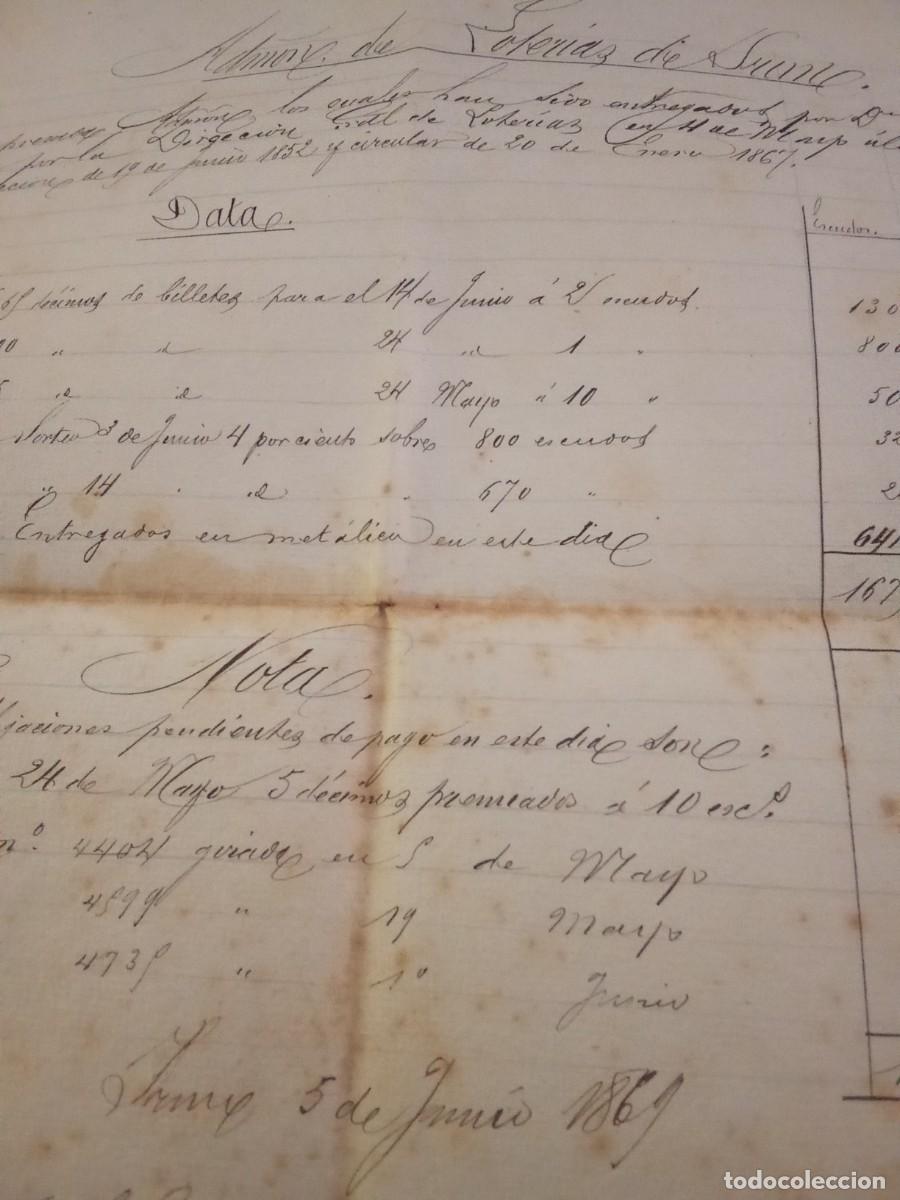 Admón. de Loterías de Irun.
Admón. los cuales han sido entregados por Dn
por la Dirección Gral de Loterías en 4 de Mayo úl
de 19 de Junio 1852 y circular de 20 de Enero 1867.
Data. Escudos.
65 décimos de billetes para el 14 de Junio á 2 escudos. 130
00 " id 24 id 1 " 800
5 id id 24 Mayo á 10 " 50
Sorteo 3 de Junio 4 por ciento sobre 800 escudos 32
" 14 . id " 670 " 2
Entregados en metálico en este dia 641
167
Nota.
pendientes de pago en este dia son:
24 de Mayo 5 décimos premiados á 10 escs.
nº. 4404 girada en 5 de Mayo
4599 " 19 Mayo
4735 " 1º Junio
Irun 5 de Junio 1869
todocoleccion